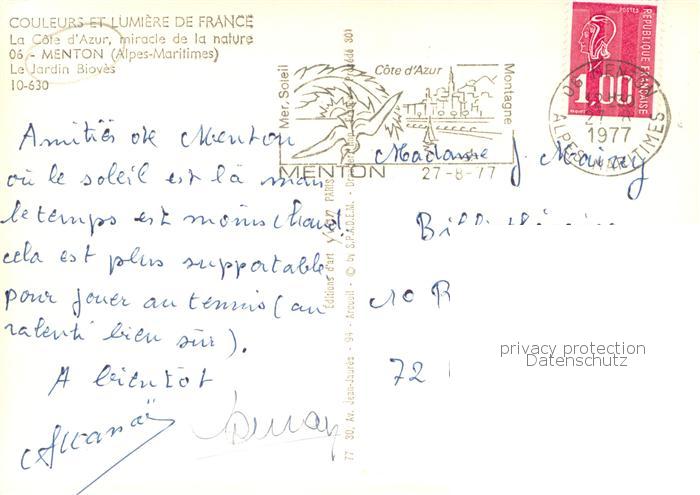 COULEURS ET LUMIÈRE DE FRANCE
La Côte d'Azur, miracle de la nature
06 - MENTON (Alpes-Maritimes)
Le Jardin Biovès
10-630
Mer, Soleil
Côte d'Azur
Montagne
MENTON
27-8-77
POSTES
REPUBLIQUE FRANÇAISE
1,00
06 MENTON
1977
ALPES MARITIMES
Amitiés de Menton
où le soleil est là mais
le temps est moins chaud,
cela est plus supportable
pour jouer au tennis (au
ralenti bien sûr).
A bientôt
Editions d'art yvon PARIS
© by S.P.A.D.E.M.
77 30, Av. Jean-Jaurès - 94 - Arcueil
Madame J.
10 R
72
privacy protection
Datenschutz